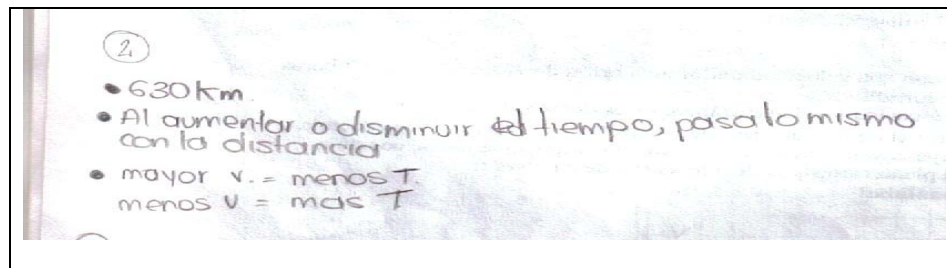 2
• 630 km.
• Al aumentar o disminuir el tiempo, pasa lo mismo
con la distancia
• mayor v. = menos T.
menos v = mas T